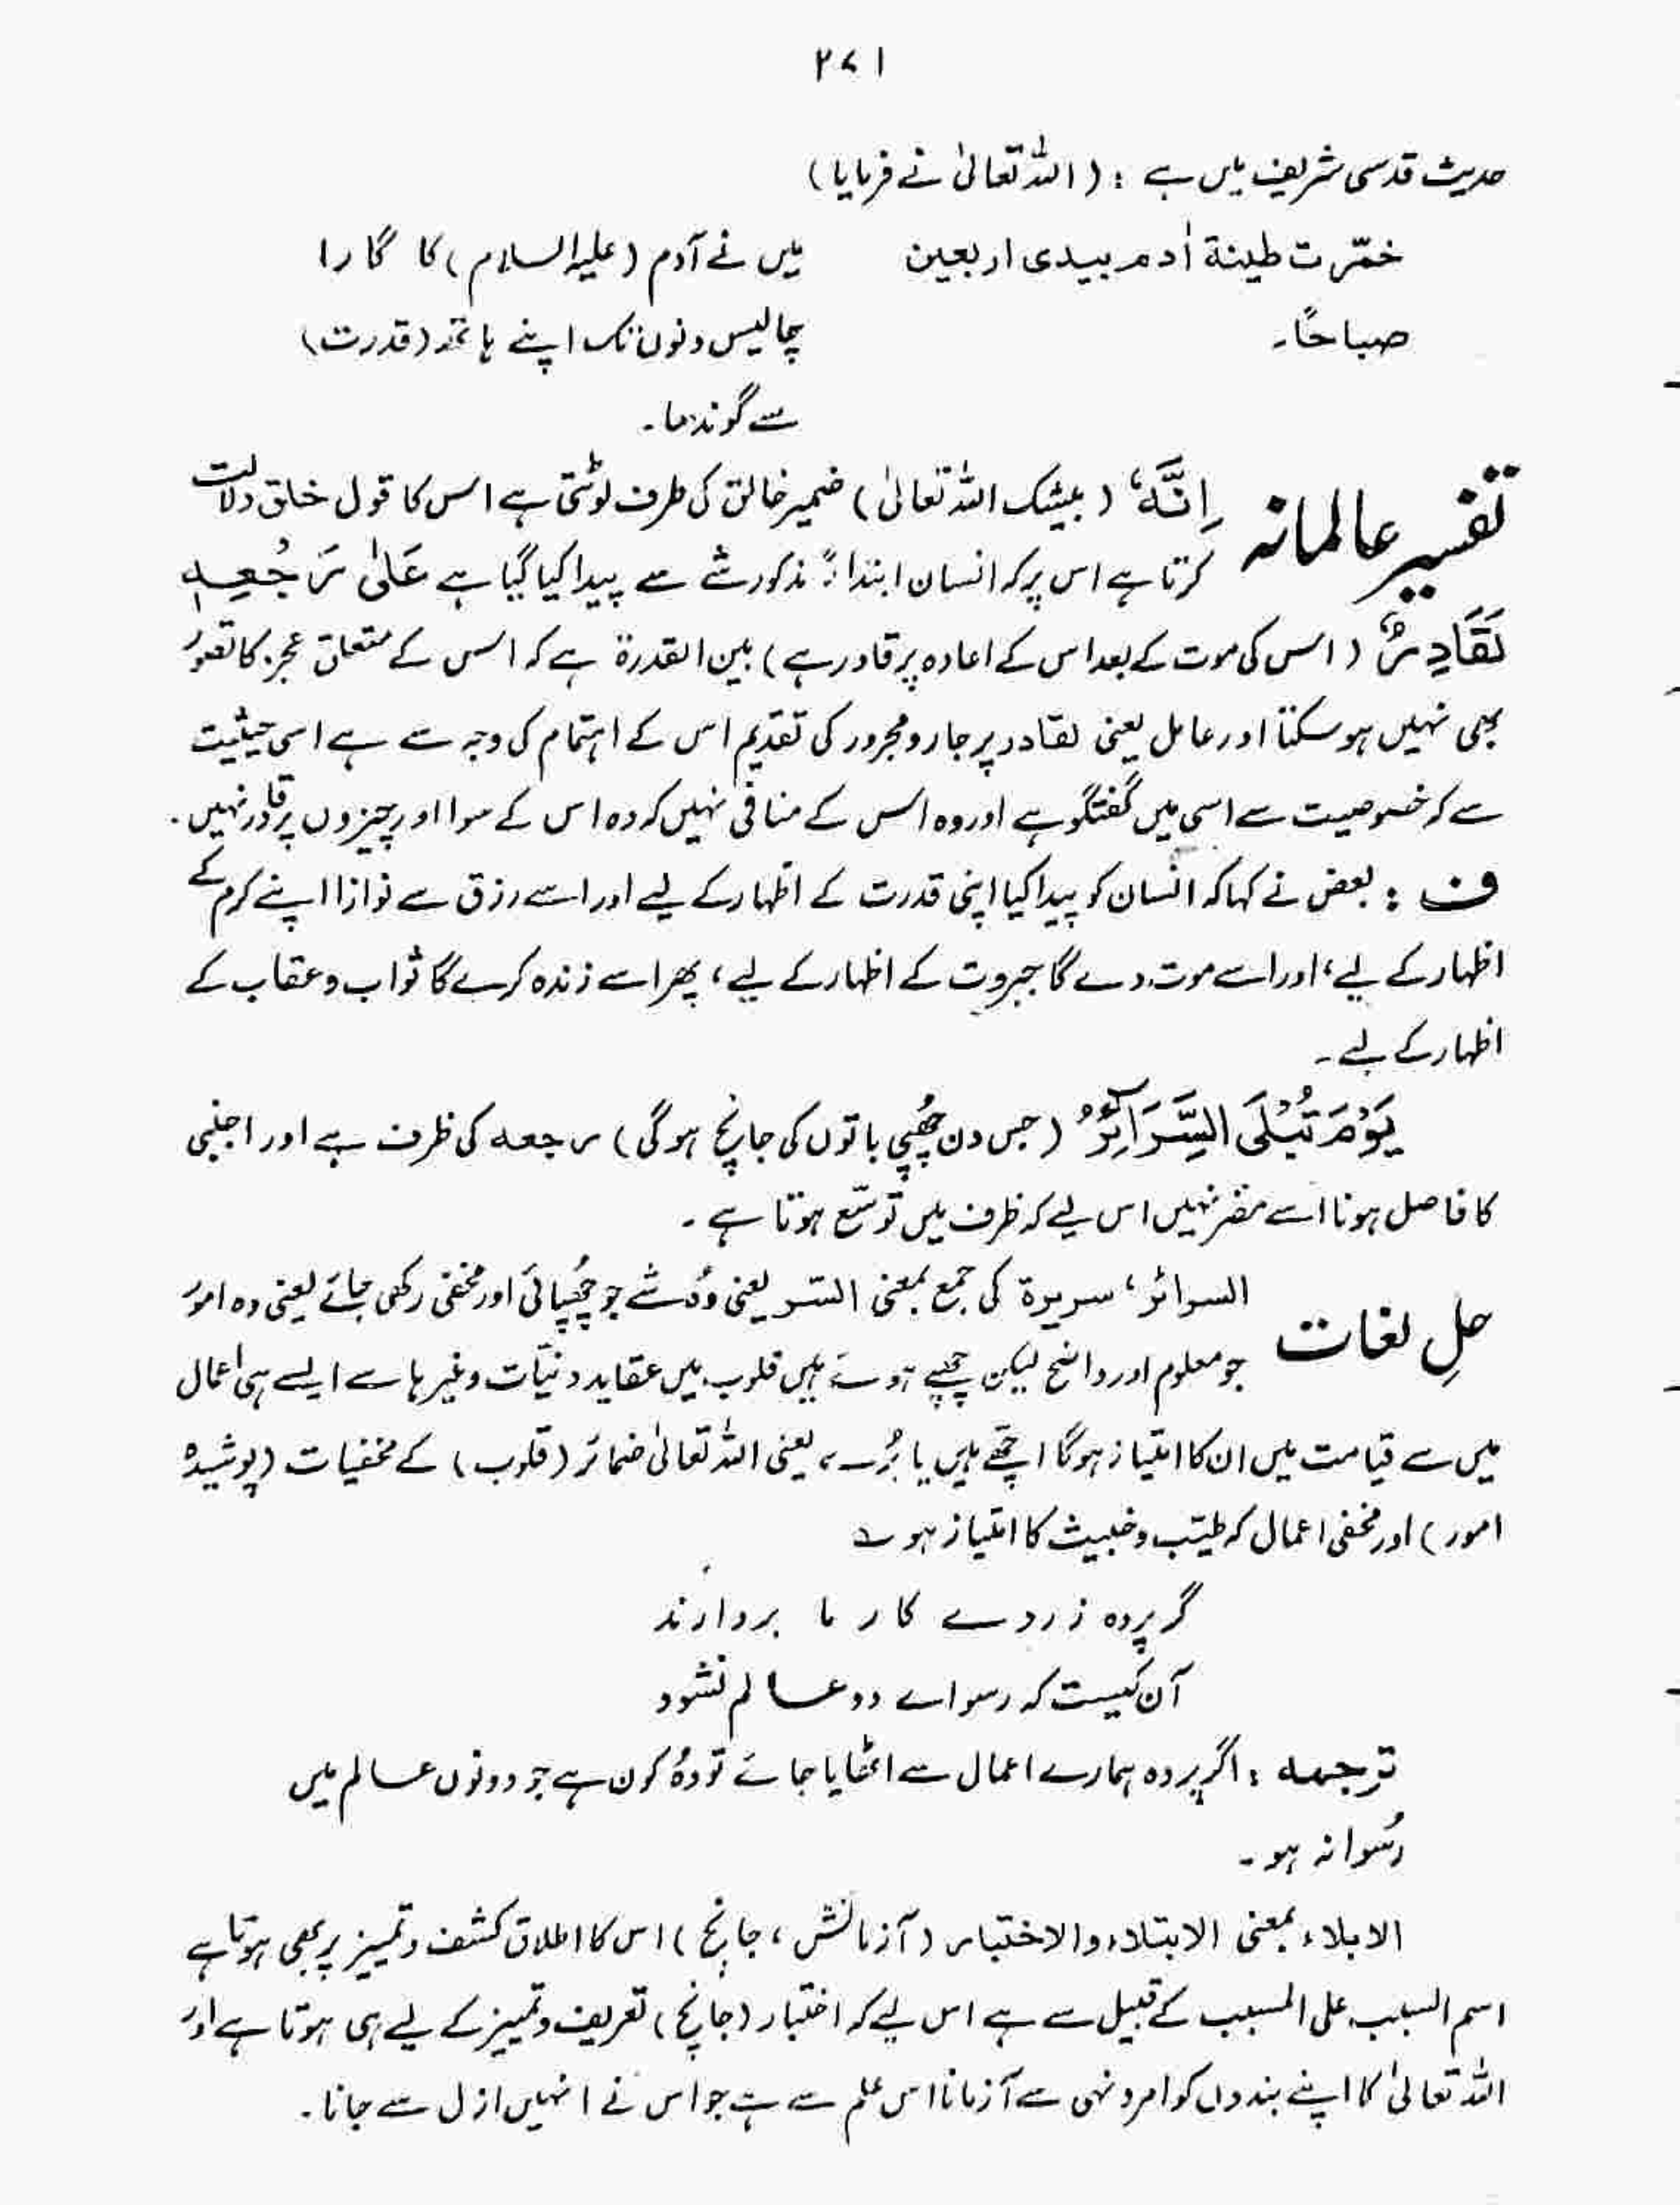 ۲۷۱
حدیث قدسی شریف میں ہے : ( اللہ تعالیٰ نے فرمایا )
خمّرت طینة اٰدم بیدی اربعین
صباحًا۔
میں نے آدم ( علیہ السلام ) کا گارا
چالیس دنوں تک اپنے ہاتھ ( قدرت )
سے گوندھا۔
تفسیر عالمانہ
اِنَّهٗ ( بیشک اللہ تعالیٰ ) ضمیر خالق کی طرف لوٹتی ہے اس کا قول خلق دلالت
کرتا ہے اس پر کہ انسان ابتداءً مذکور شے سے پیدا کیا گیا ہے عَلٰی رَجْعِهٖ
لَقَادِرٌ ( اس کی موت کے بعد اس کے اعادہ پر قادر ہے ) بین القدرة ہے کہ اس کے متعلق عجز کا تصور
بھی نہیں ہوسکتا اور عامل یعنی لقادر پر جار و مجرور کی تقدیم اس کے اہتمام کی وجہ سے ہے اسی حیثیت
سے کہ خصوصیت سے اسی میں گفتگو ہے اور وہ اس کے منافی نہیں کہ وہ اس کے سوا اور چیزوں پر قادر نہیں۔
ف : بعض نے کہا کہ انسان کو پیدا کیا اپنی قدرت کے اظہار کے لیے اور اسے رزق سے نوازا اپنے کرم کے
اظہار کے لیے ، اور اسے موت دے گا جبروت کے اظہار کے لیے ، پھر اسے زندہ کرے گا ثواب و عقاب کے
اظہار کے لیے ۔
یَوْمَ تُبْلَی السَّرَآئِرُ ( جس دن چھُپی باتوں کی جانچ ہوگی ) رجعه کی ظرف ہے اور اجنبی
کا فاصل ہونا اسے مضر نہیں اس لیے کہ ظرف میں توسّع ہوتا ہے ۔
حلِ لغات
السرائر ، سریرة کی جمع بمعنی السّر یعنی وُہ شے جو چھُپائی اور مخفی رکھی جائے یعنی وہ امور
جو معلوم اور واضح لیکن چھپے ہوئے ہیں قلوب میں عقاید و نیّات وغیرہا سے ایسے ہی اعمال
میں سے قیامت میں ان کا امتیاز ہوگا اچھے ہیں یا بُرے ، یعنی اللہ تعالیٰ ضمائر ( قلوب ) کے مخفیات ( پوشیدہ
امور ) اور مخفی اعمال کہ طیّب و خبیث کا امتیاز ہو ؎
گر پردہ ز روے کار ما بردارند
آن کیست کہ رسواے دو عالم نشود
ترجمه : اگر پردہ ہمارے اعمال سے اٹھایا جائے تو وہُ کون ہے جو دونوں عالم میں
رُسوا نہ ہو ۔
الابلاء بمعنی الابتلاء والاختبار ( آزمائش ، جانچ ) اس کا اطلاق کشف و تمییز پر بھی ہوتا ہے
اسم السبب علی المسبب کے قبیل سے ہے اس لیے کہ اختبار ( جانچ ) تعریف و تمییز کے لیے ہی ہوتا ہے اور
اللہ تعالیٰ کا اپنے بندوں کو امر و نہی سے آزمانا اس علم سے ہے جو اس نے انہیں ازل سے جانا ۔